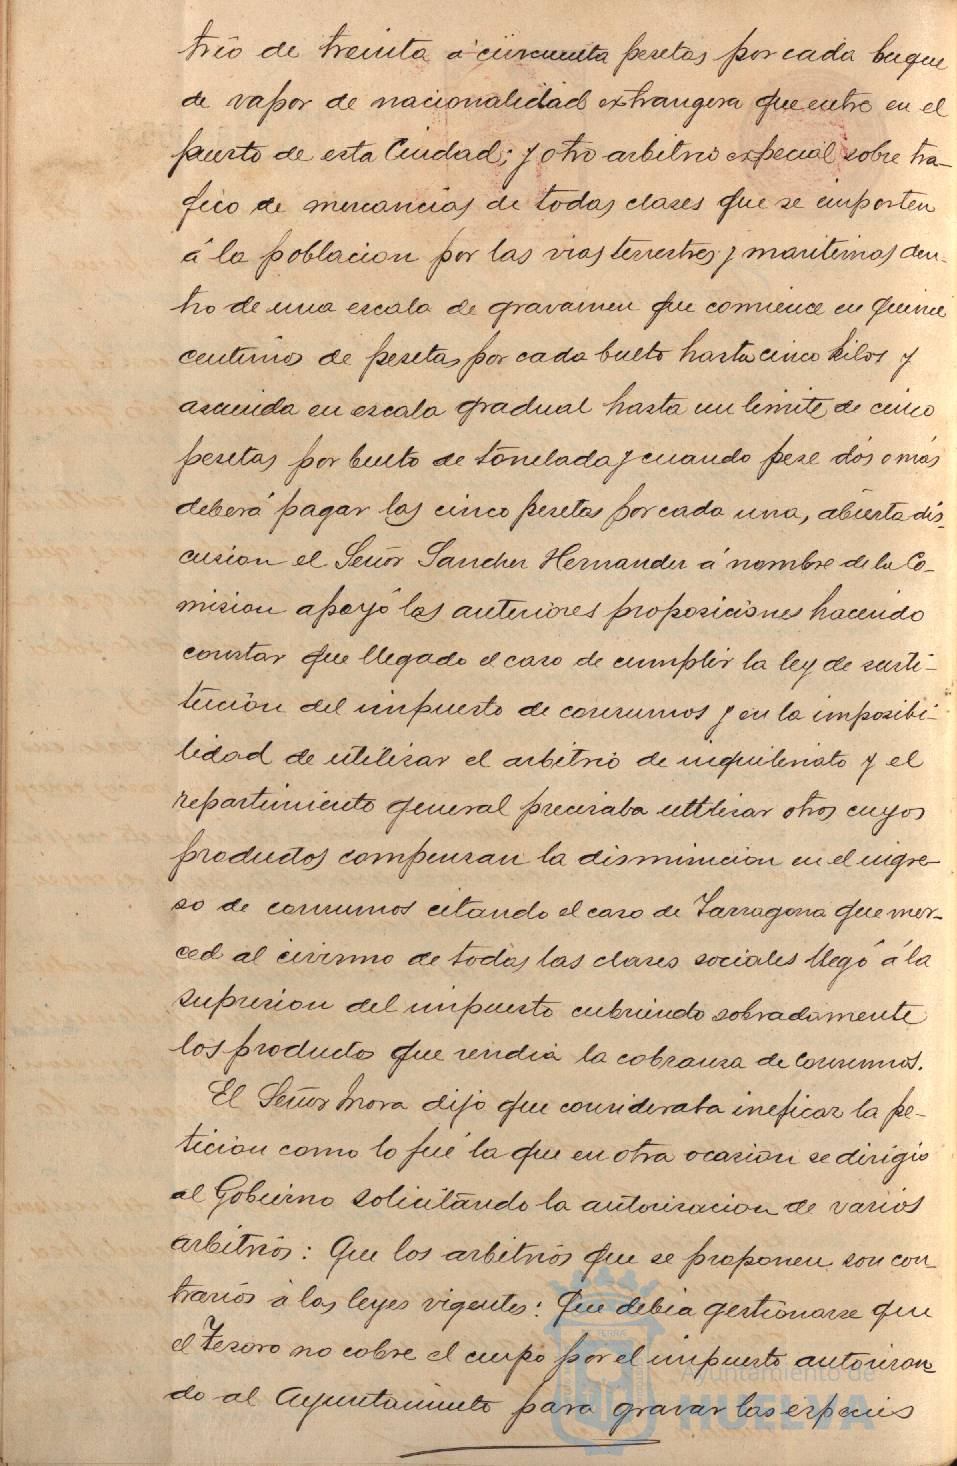 trio de treinta a cincuenta pesetas por cada buque
de vapor de nacionalidad extrangera que entre en el
puerto de esta Ciudad; y otro arbitrio especial sobre tra-
fico de mercancias de todas clases que se importen
á la poblacion por las vias terrestres y maritimas den-
tro de una escala de gravamen que comience en quince
centimos de pesetas por cada bulto hasta cinco kilos y
ascienda en escala gradual hasta un limite de cinco
pesetas por bulto de tonelada y cuando pese dós o más
deberá pagar las cinco pesetas por cada una, abierta dis-
cusion el Señor Sanchez Hernandez á nombre de la Co-
mision apoyó las anteriores proposiciones haciendo
constar que llegado el caso de cumplir la ley de susti-
tución del impuesto de consumos y en la imposibi-
lidad de utilizar el arbitrio de inquilinato y el
repartimiento general precisaba utilizar otros cuyos
productos compensan la disminucion en el ingre-
so de consumos citando el caso de Tarragona que mer-
ced al civismo de todas las clases sociales llegó á la
supresion del impuesto cubriendo sobradamente
los productos que rendia la cobranza de Consumos.
El Señor Mora dijo que consideraba ineficaz la pe-
ticion como lo fué la que en otra ocasion se dirigió
al Gobierno solicitando la autorizacion de varios
arbitrios: Que los arbitrios que se proponen son con-
trarios á las leyes vigentes: Que debia gestionarse que
el Tesoro no cobre el cupo por el impuesto autorizan-
do al Ayuntamiento para gravar las especies
Ayuntamiento de
HUELVA